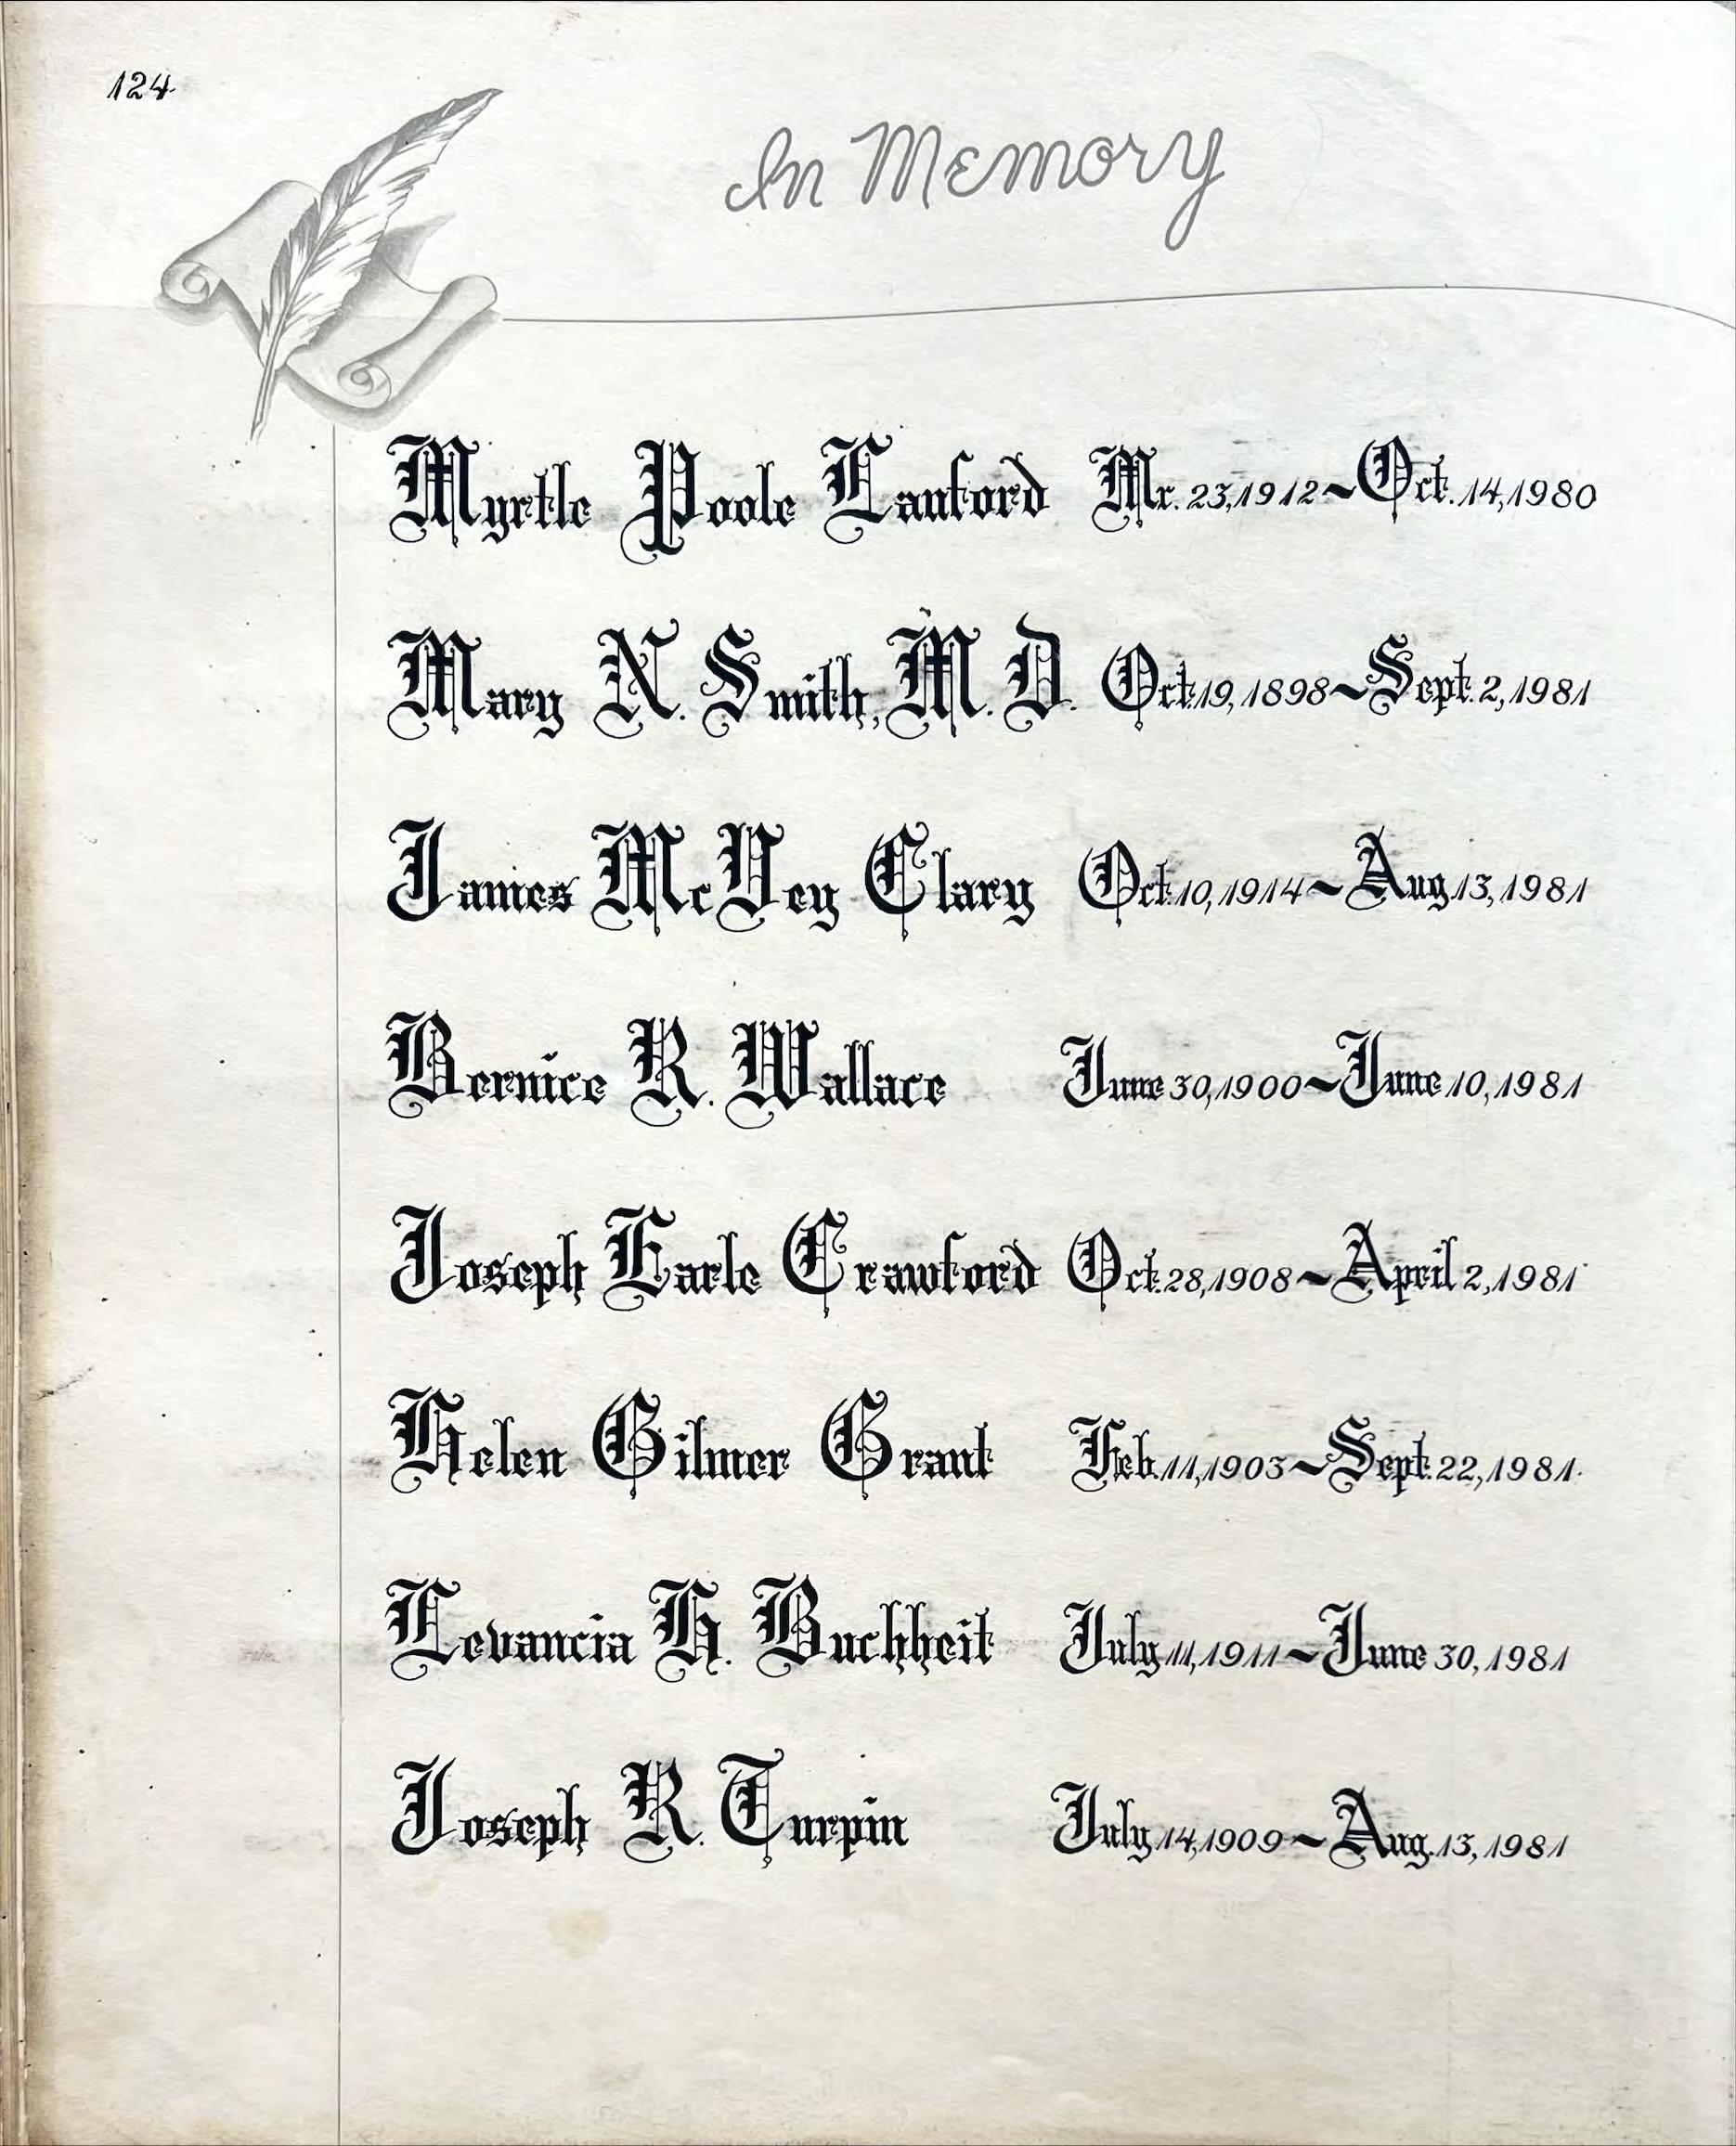 124
In Memory
Myrtle Poole Lanford Mr. 23, 1912~Oct. 14, 1980
Mary N. Smith, M. D. Oct. 19, 1898~Sept. 2, 1981
James McVey Clary Oct. 10, 1914~Aug. 13, 1981
Bernice R. Wallace June 30, 1900~June 10, 1981
Joseph Earle Crawford Oct. 28, 1908~April 2, 1981
Helen Gilmer Grant Feb. 11, 1903~Sept. 22, 1981
Levancia H. Buchheit July 11, 1911~June 30, 1981
Joseph R. Turpin July 14, 1909~Aug. 13, 1981